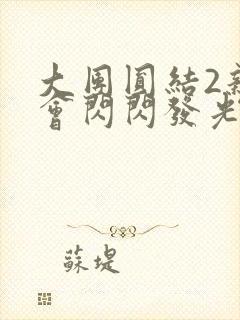 大團圓結2新
會閃閃發光
蘇堤